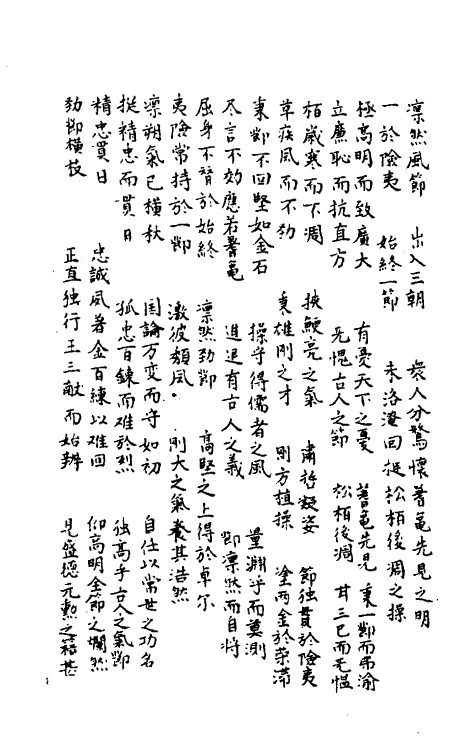 凛然風節　出入三朝　衆人分驚懷蓍龜先見之明
一於險夷　始終一節　未洛淹回挺松栢後凋之操
極高明而致廣大　有憂天下之憂　蓍龜先見　秉一節而弗渝
立廉恥而抗直方　无愧古人之節　松栢後凋　甘三已而无愠
栢歲寒而不凋　挾鯁亮之氣　肅括凝姿　節独貫於險夷
草疾風而不勁　秉雄剛之才　剛方植操　塗两金於荣滯
秉節不回堅如金石　操守得儒者之風　量渊乎而莫測
尽言不効應若蓍龜　進退有古人之義　節凛然而自將
屈身不替於始終　凛然勁節　高堅之上得於卓尔
夷險常持於一節　激彼頹風　剛大之氣養其浩然
凛朔氣已橫秋　国論万变而守如初　自任以當世之功名
挺精忠而貫日　孤忠百鍊而难於烈　独高乎古人之氣節
精忠貫日　忠誠夙著金百練以难回　仰高明全節之爛然
勁節橫枝　正直独行王三献而始辨　見盛德元勲之藉甚